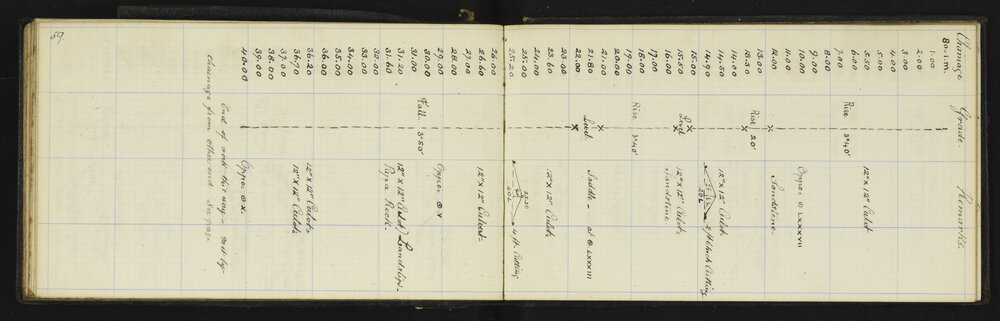 Chainage Grade. Remarks.
80. 1. m.
1.00
2.00
3.00
4.00
5.00
5.50 12" x 12" Culvt
6.00
7.00 Rise 3° 40'
8.00
9.00
10.00 Oppo. ⊙ LXXXVII
11.00
12.00 Sandstone.
13.00
13.30 Rise 20'
14.00
14.50 12" x 12" Culvt.
14.90 2 ft Chck Cutting
15.00
15.50 Level 12" x 12" Culvt.
16.00 Sandstone.
17.00
18.00 Rise 3° 40'
19.00
20.00
21.00
21.80 Level Saddle - at ⊙ LXXXIII
22.00
23.00
23.60
24.00 12" x 12" Culvt
25.00
25.20 4 ft. Cutting
26.00
26.60 12" x 12" Culvert.
27.00
28.00
29.00 Oppo. ⊙ V
30.00 Fall. 3° 50'
31.00
31.20 12" x 12" Culvt / Landslip.
31.60 Papa Rock.
32.00
33.00
34.00
35.00
36.00
36.20 12" x 12" Culvt.
36.70 12" x 12" Culvt.
37.00
38.00
39.00
40.00 Oppo. ⊙ X.
End of work this way - met by
chainage from other end See page
89.